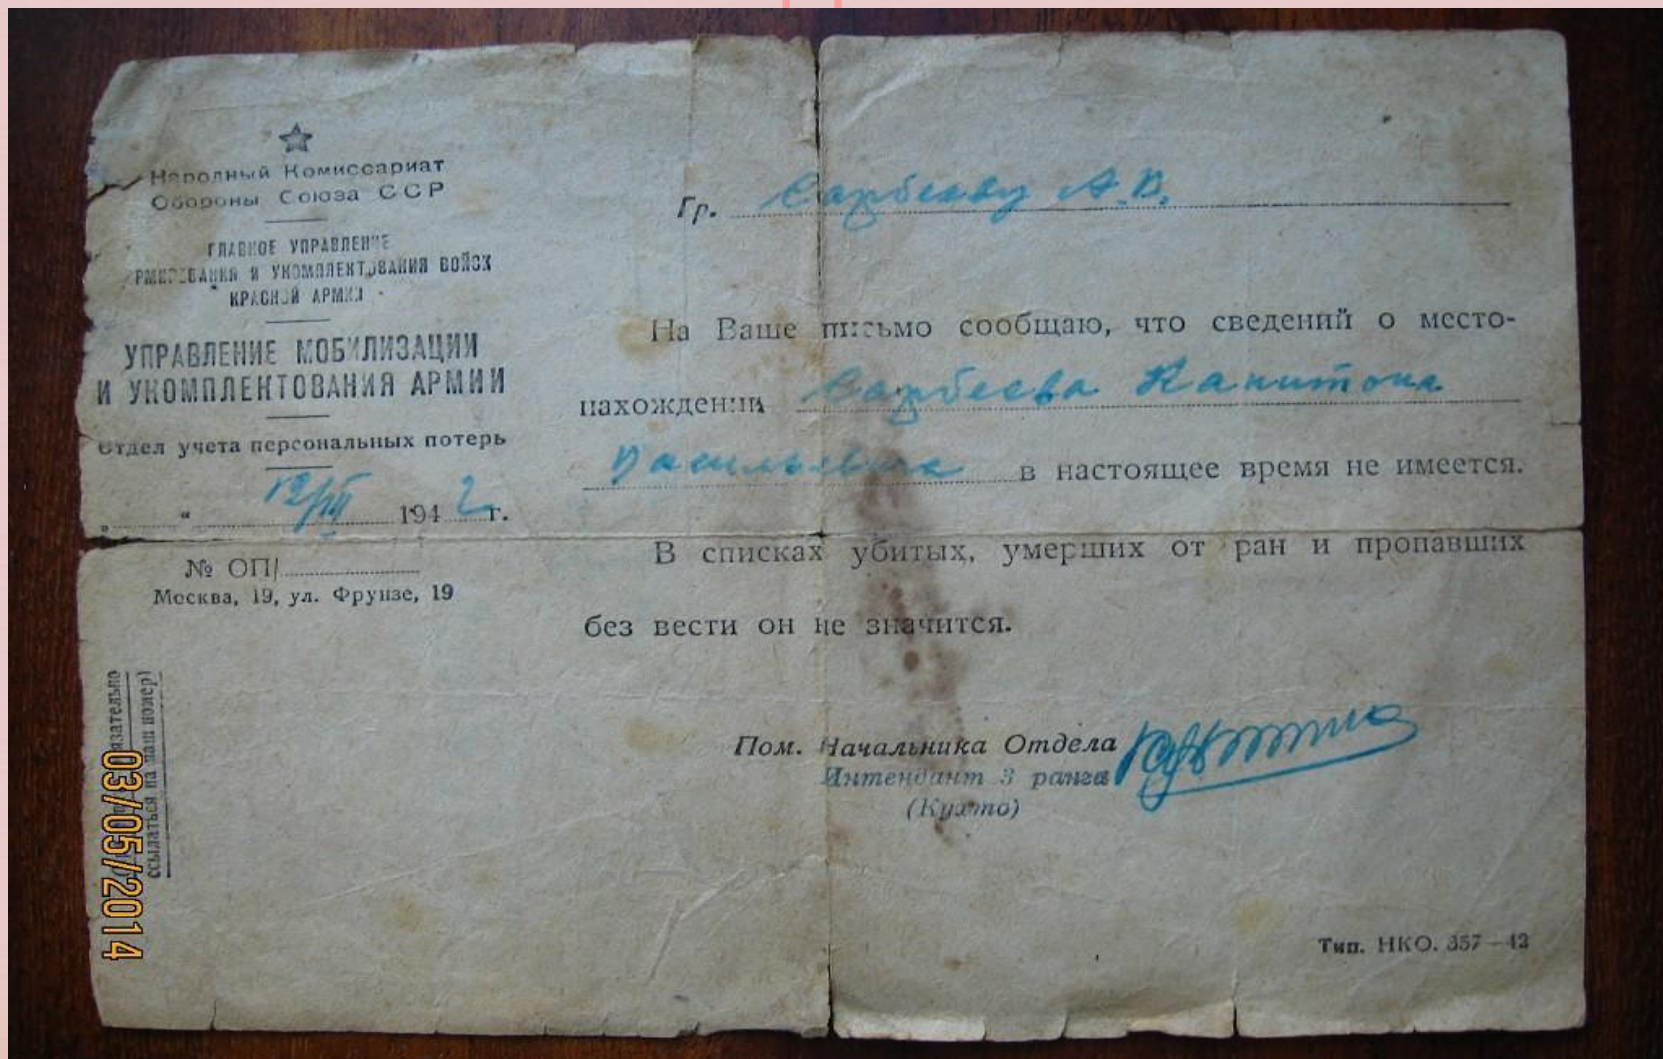 Народный Комиссариат
Обороны Союза ССР
ГЛАВНОЕ УПРАВЛЕНИЕ
РМИРОВАНИЯ И УКОМПЛЕКТОВАНИЯ ВОЙСК
КРАСНОЙ АРМИИ
УПРАВЛЕНИЕ МОБИЛИЗАЦИИ
И УКОМПЛЕКТОВАНИЯ АРМИИ
Отдел учета персональных потерь
„ “ 12/III 1942 г.
№ ОП/
Москва, 19, ул. Фрунзе, 19
язательно
ссылаться на наш номер)
03/05/2014
Гр. Сарбееву А.В.
На Ваше письмо сообщаю, что сведений о место-
нахождении Сарбеева Капитона
Васильевича в настоящее время не имеется.
В списках убитых, умерших от ран и пропавших
без вести он не значится.
Пом. Начальника Отдела
Интендант 3 ранга
(Кухто)
Тип. НКО. 357—42